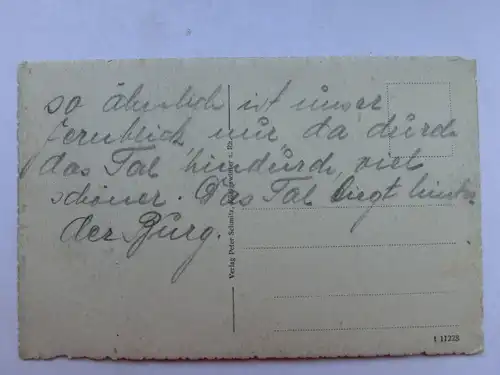 so ähnlich ist unser
Fernblick, nur da durch
das Tal hindurch, viel
schöner. Das Tal liegt hinter
der Burg.
Verlag Peter Schmitz,
1 11228